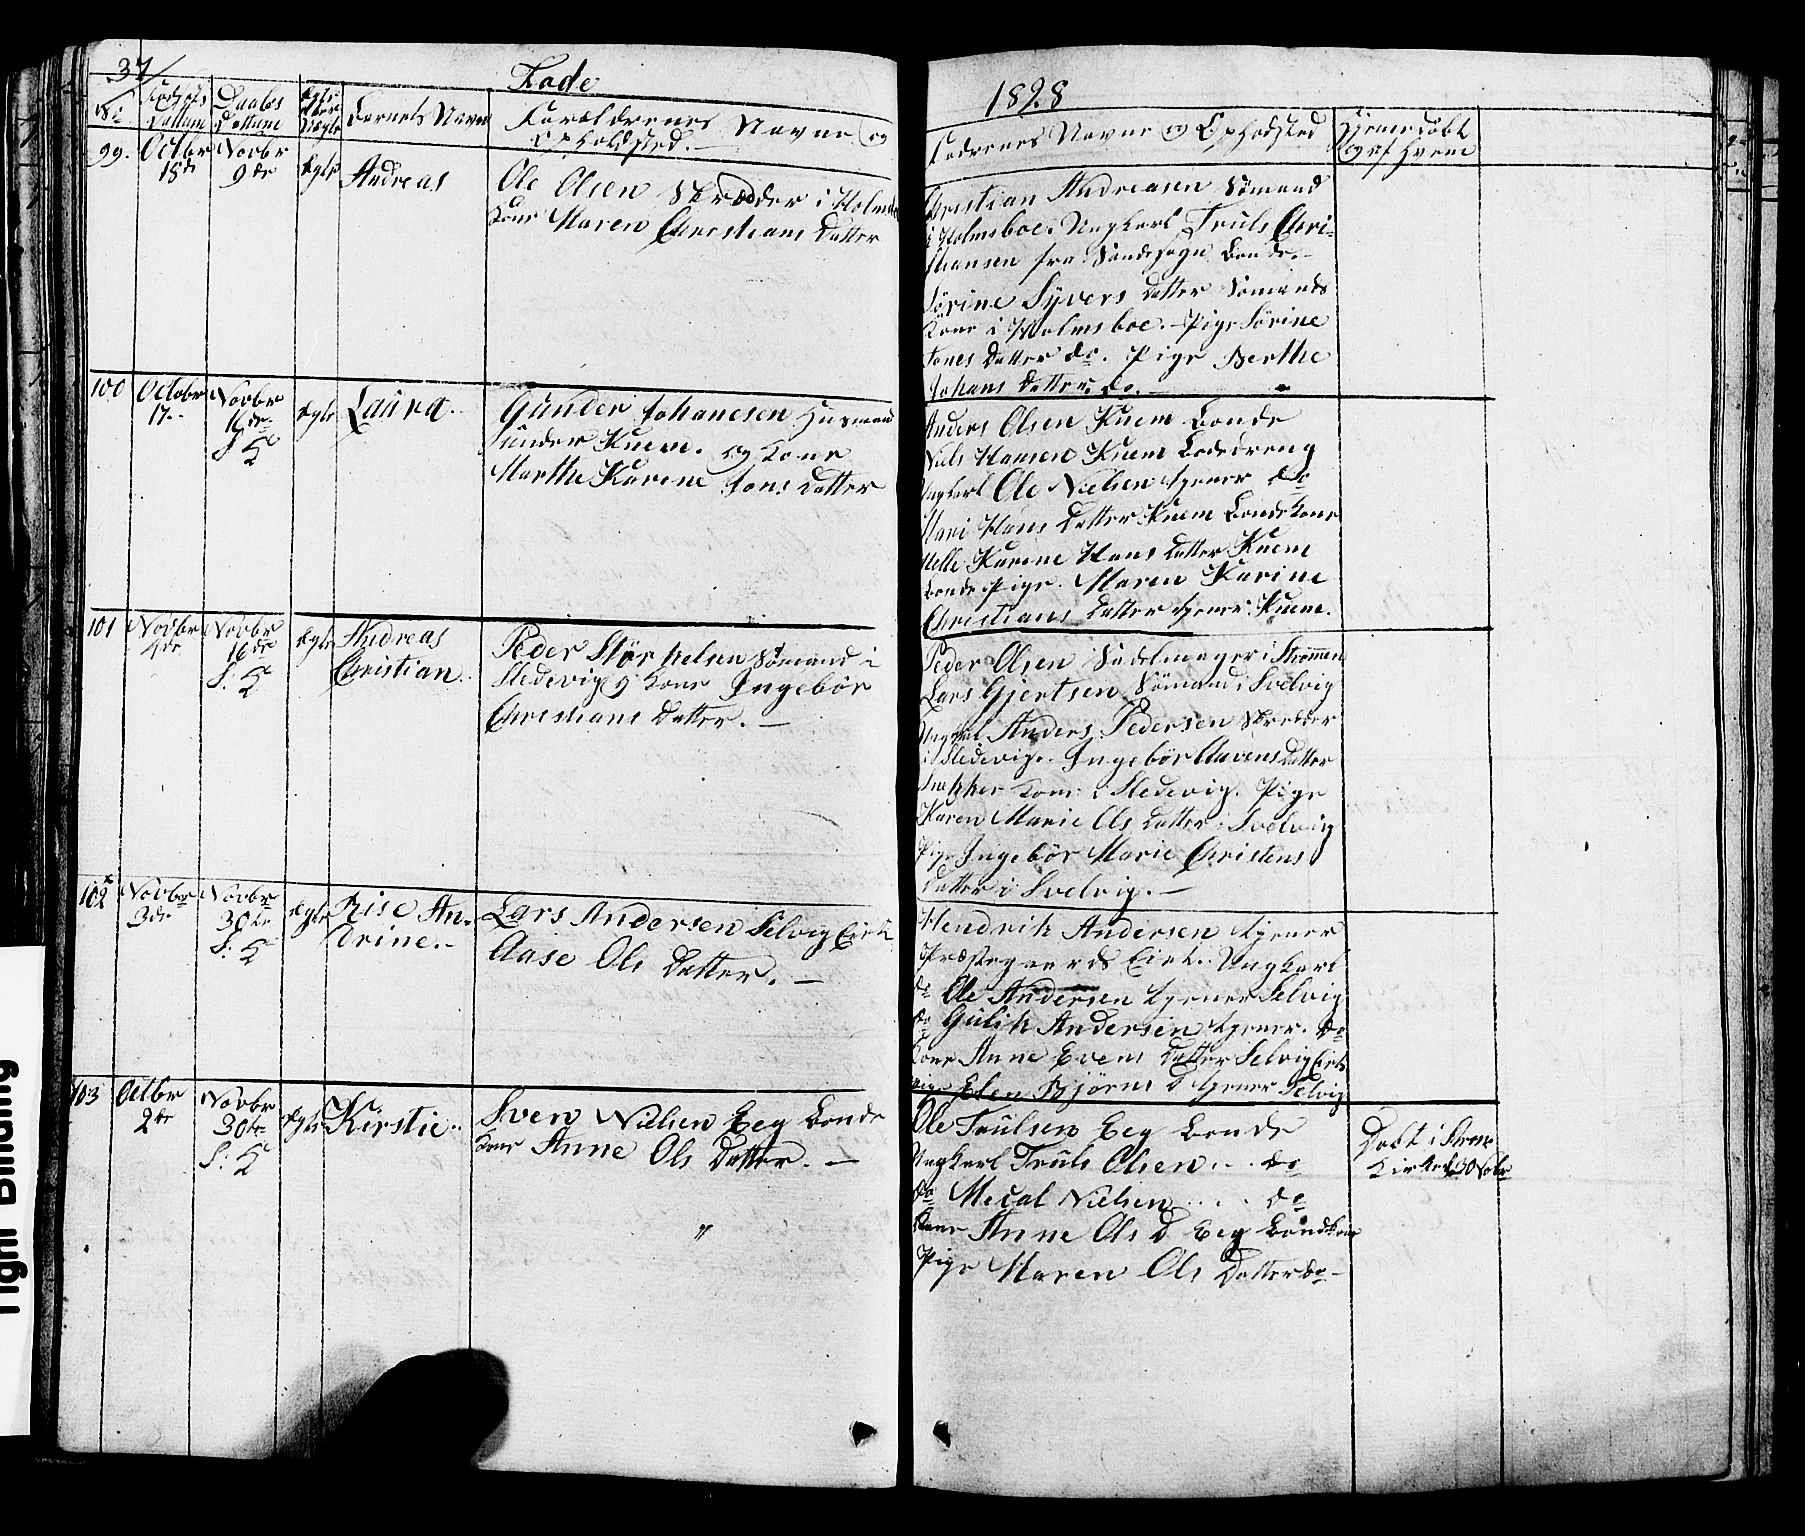 37
Fødde
1828
No
Fødsels
Dattum
Daabs
Dattum
Ægte
eller
Uægte
Barnets Navn
Foreldrenes Navne og
Opholdsted.
Fadrenes Navne og Opholdsted
Hjemedøbt
og af hvem
99.
Octbr
18de
Novbr
9de
Ægte
Andreas
Ole Olsen Skrædder i Holmsb
Kone Maren Christians Datter
Christian Andreasen Sømand
i Holmsboe. Ungkarl Truls Chri-
stiansen fra Sandesogn Bonde.
Sørine Syvers Datter Sømands
Kone i Holmsboe. Pige Sørine
Jones Datter do. Pige Berthe
Johans Datter do.
100
Octobr
17.
Novbr
16de
S: K
Ægte
Laura.
Gunder Johanesen Husmand
under Knem. og Kone
Marthe Karine Jons Datter
Anders Olsen Knem Bonde
Niels Hansen Knem Bondedreng
Ungkarl Ole Nielsen tjener do
Mari Hans Datter Knem Bondekone
Helle Karine Hans Datter Knem
Bonde Pige. Maren Karine
Christians Datter tjener Knem.
101
Novbr
4de
Novbr
16de
S: K
Ægte
Andreas
Christian.
Peder Størkelsen Sømand i
Sledevig og Kone Ingebør
Christians Datter.
Peder Olsen Sadelmager i Strømmen
Lars Gjertsen Sømand i Svelvig
Ungkarl Anders Pedersen Skredder
i Sledevig. Ingebør Aavens Datter
Snekker Kone i Sledevig. Pige
Karen Marie Ols Datter i Svelvig
Pige Ingebør Marie Christens
Datter i Svelvig.
102
Novbr
3de
Novbr
30te
S: K
Ægte
Rise An-
drine.
Lars Andersen Selvig Eie
Aase Ols Datter.
Hendrik Andersen tjener
Præstegaards Eiet. Ungkarl
do Ole Andersen tjener Selvig
do Gulik Andersen tjener. do
Kone Anne Evens Datter Selvig Eiet
Pige Elen Bjørns D tjener Selvig
103
Octbr
2de
Novbr
30te
S: K
Ægte
Kirstie.
Sven Nielsen Eeg Bonde
Kone Anne Ols Datter.
"
Ole Trulsen Eeg Bonde
Ungkarl Truls Olsen.. do
do Mecal Nielsen.... do
Kone Anne Ols D Eeg Bondekone
Pige Maren Ols Datter do
Døbt i Strøm
Kirke 30 Nobr
Tight Binding